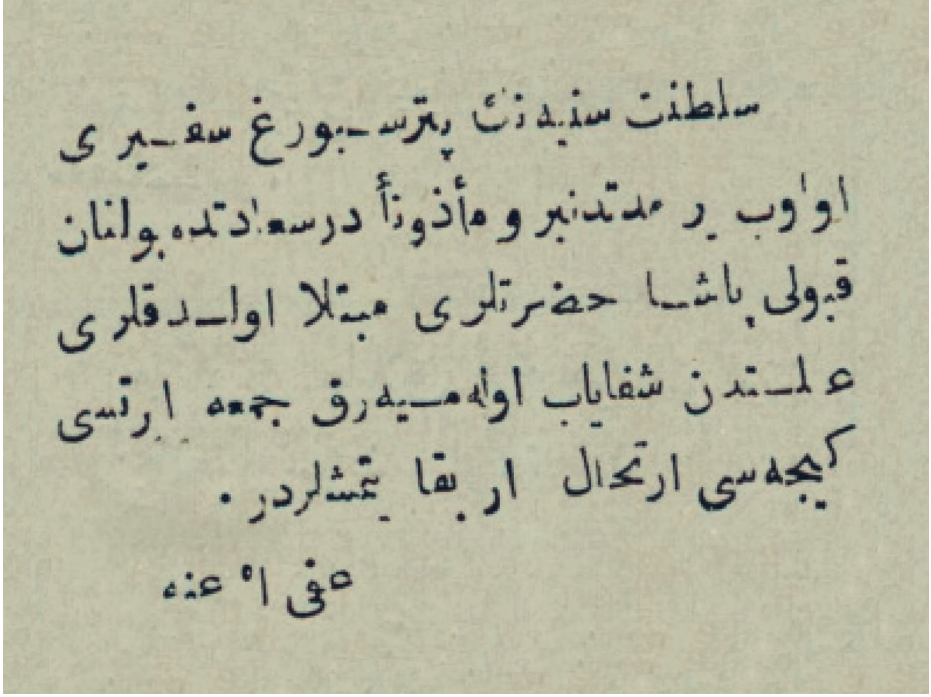 سلطنت سنیه نڭ پترسبورغ سفیری
اولوب بر مدتدنبر و مأذوناً درسعادتده بولنان
قبولی پاشا حضرتلری مبتلا اولدقلری
علتدن شفایاب اوله میه رق جمعه ارتسی
کیجه سی ارتحال ار بقا یتمشلردر ·
عفی ا* عنه